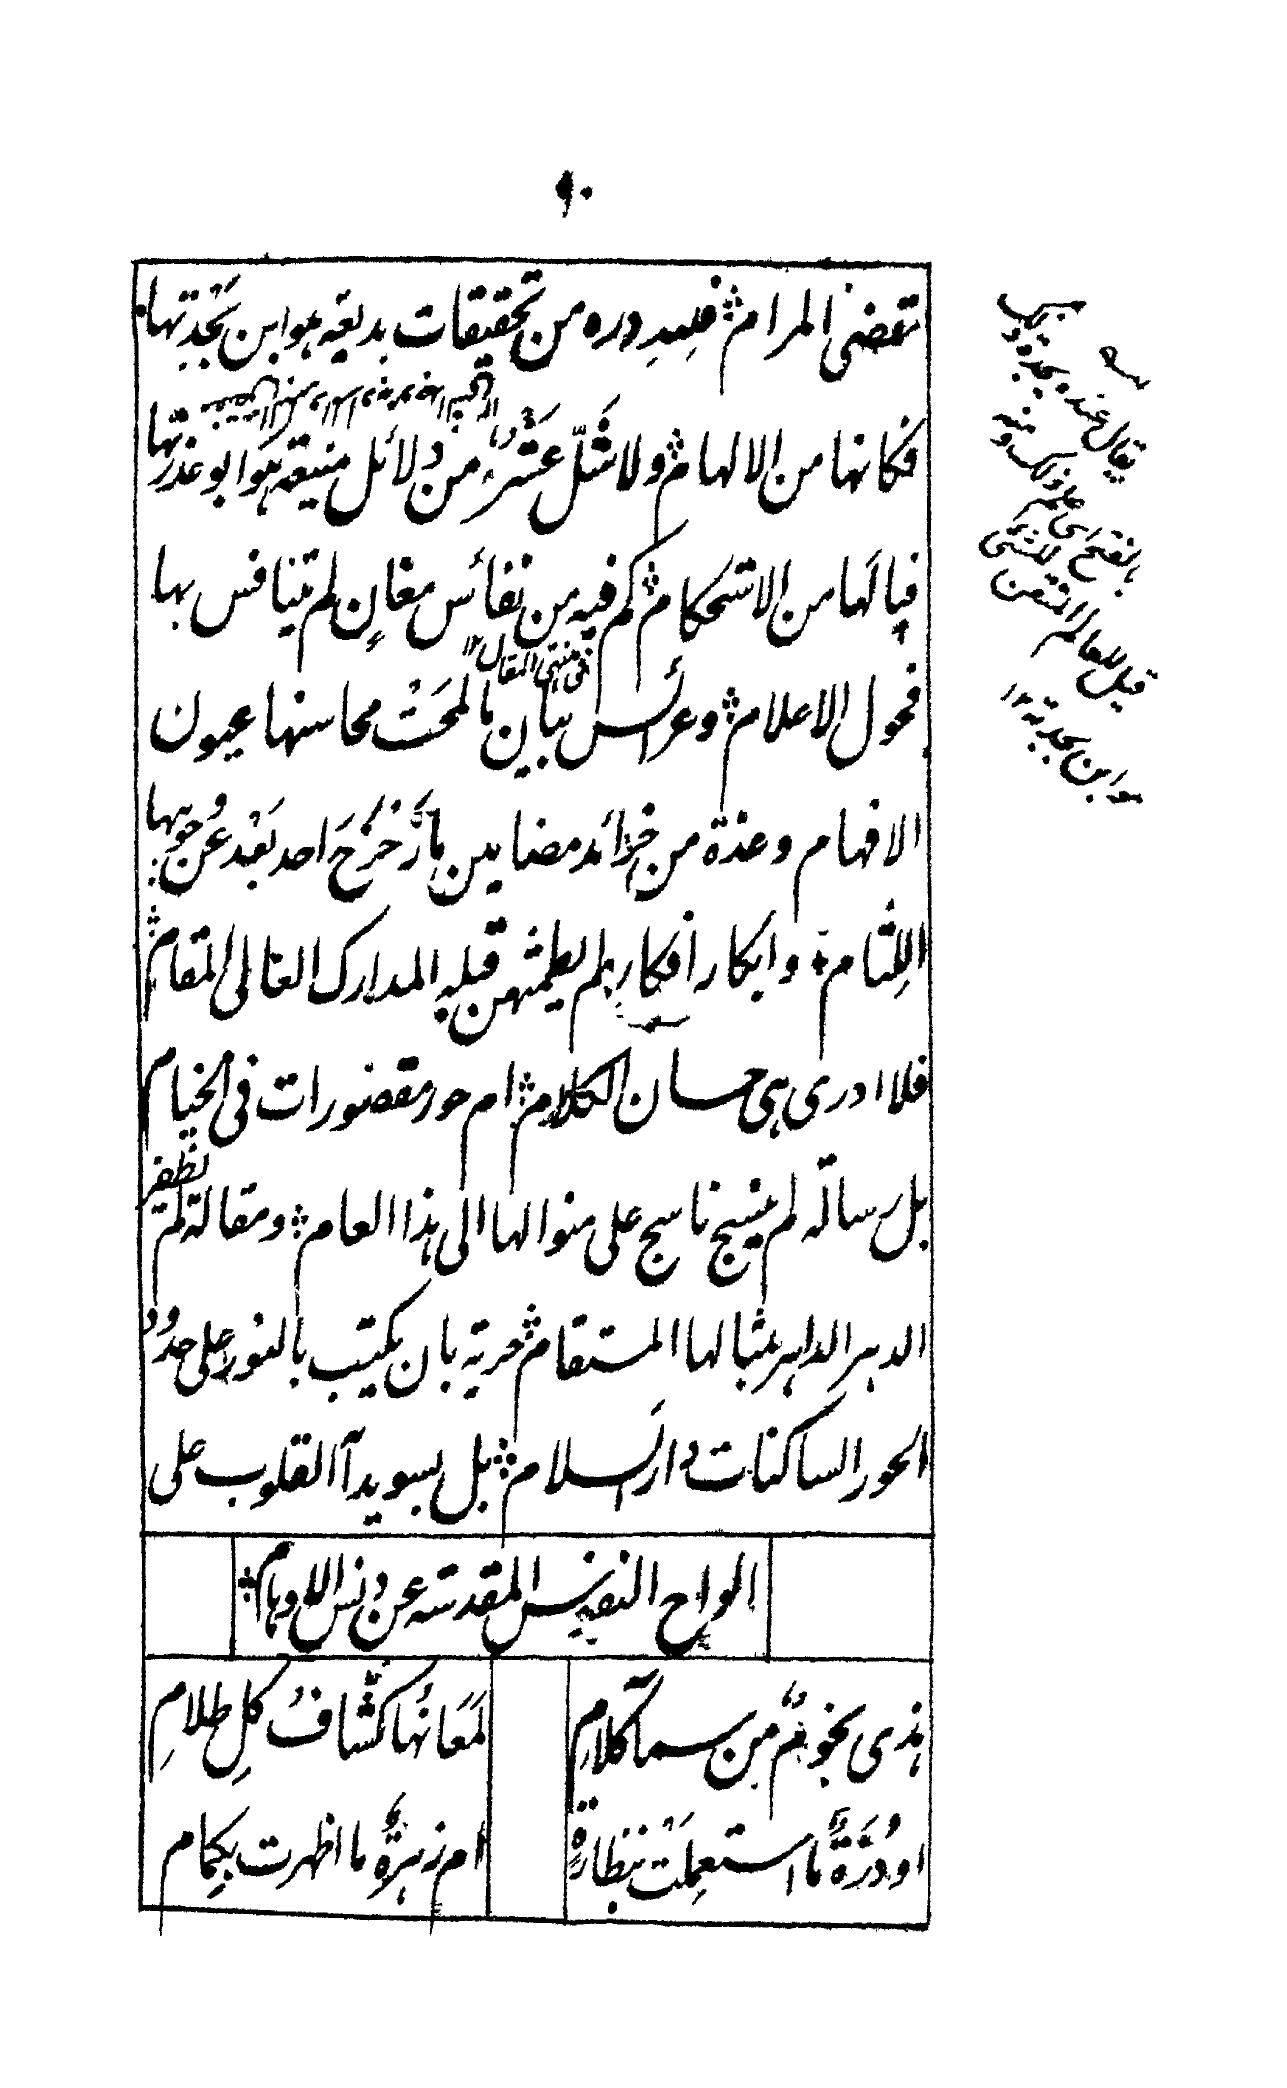 ٩٠
تقضى المرام ۞ فلله دره من تحقيقات بديعة هو ابن بَجْدَتها
فكأنها من الالهام ۞ ولا شَلَّ عَشْرُه من دلائل منيعة هو ابو عذرتها
فيا لها من الاستحكام ۞ كم فيه من نفائس مغانٍ لم يتنافس بها
فحول الاعلام ۞ وعرائس بيان ما لمحَتْ محاسنها عيون
الافهام وعدة من خرائد مضامين ما زَحْزَحَ احد بَعْد عن وجوهها
اللِثام ۞ وابكار أفكار لم يطمثهن قبله المدارك العالى المقام ۞
فلا ادرى هى حسان الكلام ۞ ام حور مقصورات فى الخيام
بل رسالة لم ينسج ناسج على منوالها الى هذا العام ۞ ومقالة لم تظفر
الدهر الداهر بمثالها المستقام ۞ حرية بان يكتب بالنور على خدود
الحور الساكنات دار السلام ۞ بل بسويدآ القلوب على
الواح النفيس المقدسة عن دنس الاوهام ۞
هذى نجومٌ من سمآ كلامِ
لمَعَانُها كشّافُ كل ظلامِ
او دُرَّةٌ ما استعملَتْ بنظارةٍ
ام زهرةٌ ما اظهرت بكِمام
يقال عنده بجدة ذلك
بالفتح اى علم ذلك ومنه
قيل للعالم المتقن للشئ
هو ابن بجدته ١٢
فى منتهى المقال ١٢